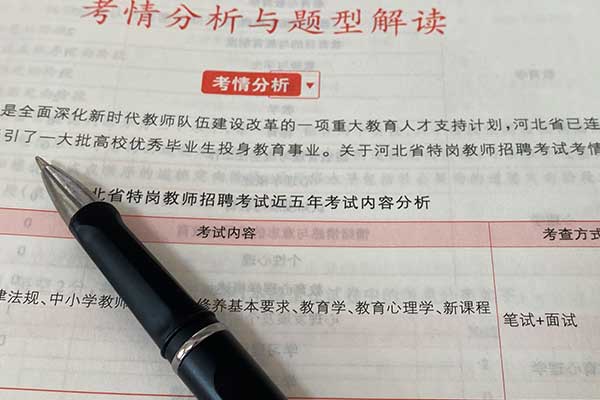 考情分析与题型解读
考情分析
是全面深化新时代教师队伍建设改革的一项重大教育人才支持计划,河北省已连
引了一大批高校优秀毕业生投身教育事业。关于河北省特岗教师招聘考试考情
北省特岗教师招聘考试近五年考试内容分析
考试内容 考查方式
律法规、中小学教师 修养基本要求、教育学、教育心理学、新课程
笔试+面试